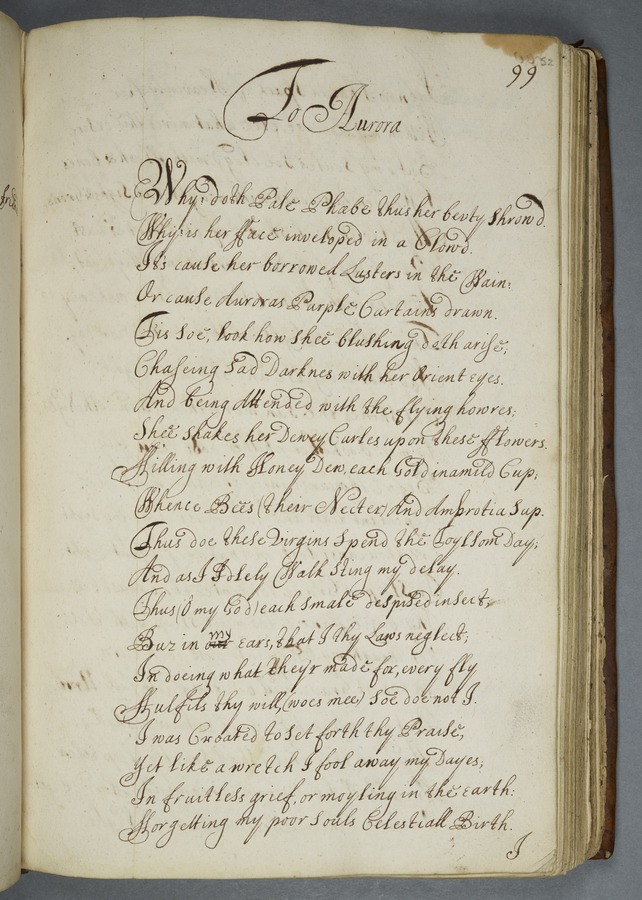 99
52
To Aurora
Why: doth Pale Phæbe thus her bevty Shrowd.
Why: is her fface inveloped in a Clowd.
It's cause her borrowed Lusters in the Wain:
Or cause Auroras Purple Curtains drawn.
Tis Soe, look how Shee blushing doth arise;
Chaseing Sad Darknes with her Orient eyes.
And being Attended with the flying howres;
Shee Shakes her Dewey Curles upon these fflowers.
ffilling with Honey Dew, each Goldinamild Cup;
Whence Bees (their Necter) And Ambrotia Sup.
Thus doe these Virgins Spend the Joyllsom Day;
And as I Idlely Walk Sting my delay.
Thus (O my God) each Smale despised insect,
Buz in our my ears, that I thy Laws neglect;
In doeing what theyr made for, every fly
ffulfils thy will, (woes mee) Soe doe not I.
I was Created to Set forth thy Praise,
Yet like a wretch I fool away my Dayes;
In fruitless grief, or moyling in the Earth:
fforgetting my poor Souls Celestiall Birth.
I